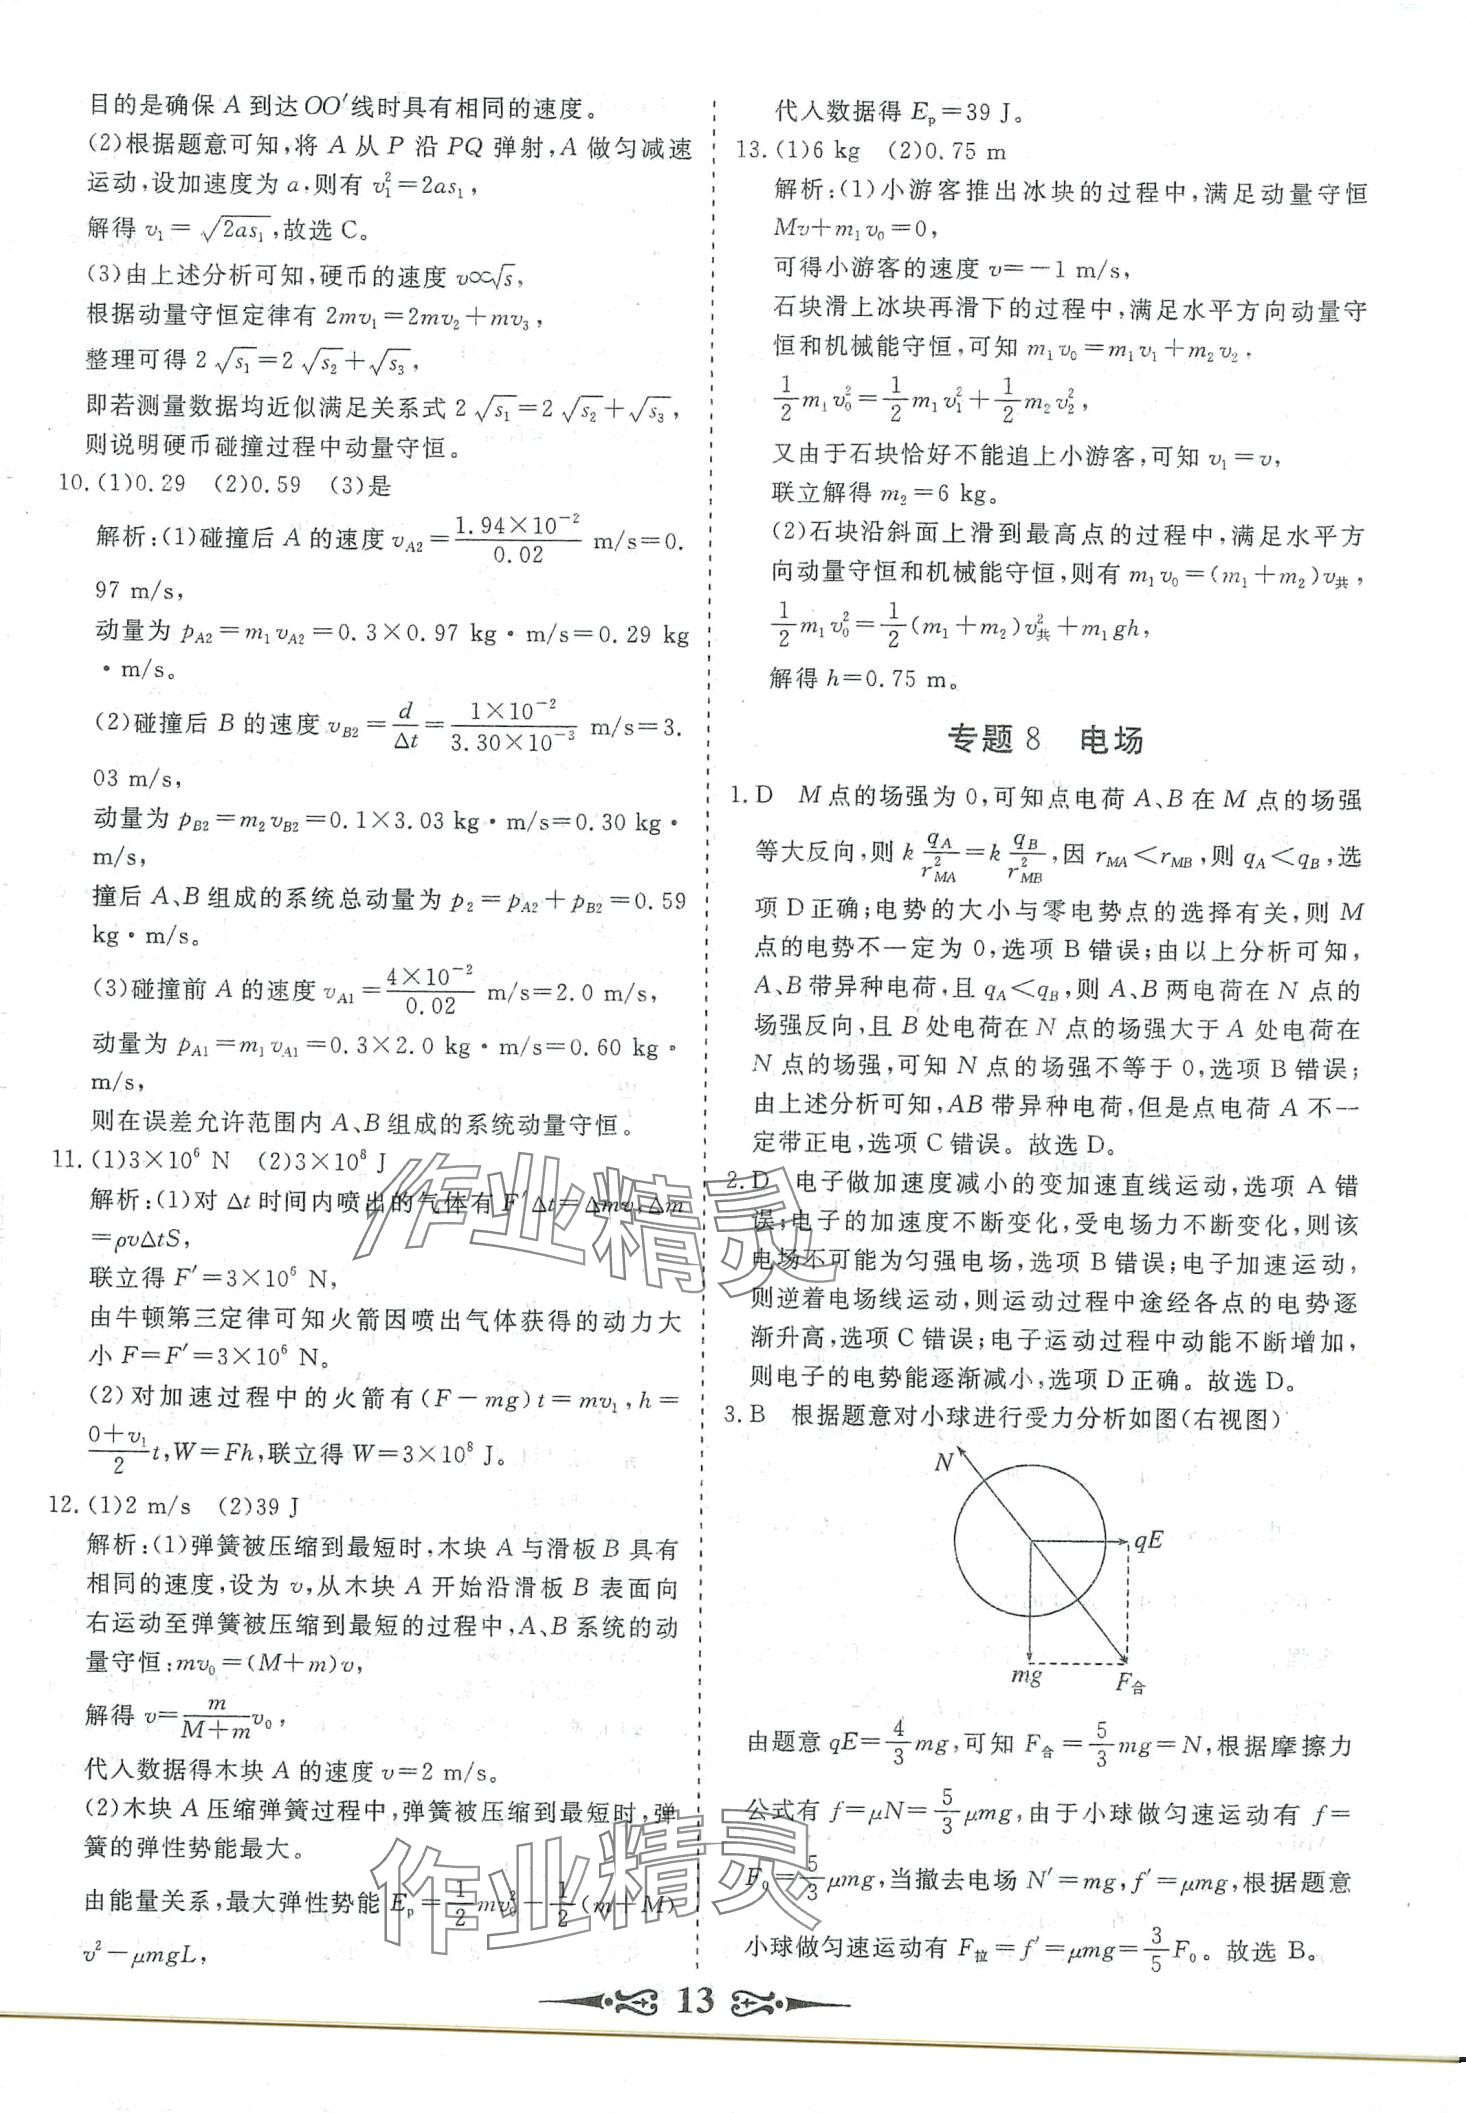 目的是确保 A 到达 OO′线时具有相同的速度。
(2)根据题意可知,将 A 从 P 沿 PQ 弹射,A 做匀减速
运动,设加速度为 a,则有 v₁²=2as₁,
解得 v₁=√(2as₁),故选 C。
(3)由上述分析可知,硬币的速度 v∝√s,
根据动量守恒定律有 2mv₁=2mv₂+mv₃,
整理可得 2√s₁=2√s₂+√s₃,
即若测量数据均近似满足关系式 2√s₁=2√s₂+√s₃,
则说明硬币碰撞过程中动量守恒。
10. (1)0.29 (2)0.59 (3)是
解析:(1)碰撞后 A 的速度 v_A2=(1.94×10⁻²)/0.02 m/s=0.
97 m/s,
动量为 p_A2=m₁v_A2=0.3×0.97 kg·m/s=0.29 kg
·m/s。
(2)碰撞后 B 的速度 v_B2=d/Δt=(1×10⁻²)/(3.30×10⁻³) m/s=3.
03 m/s,
动量为 p_B2=m₂v_B2=0.1×3.03 kg·m/s=0.30 kg·
m/s,
撞后 A、B 组成的系统总动量为 p₂=p_A2+p_B2=0.59
kg·m/s。
(3)碰撞前 A 的速度 v_A1=(4×10⁻²)/0.02 m/s=2.0 m/s,
动量为 p_A1=m₁v_A1=0.3×2.0 kg·m/s=0.60 kg·
m/s,
则在误差允许范围内 A、B 组成的系统动量守恒。
11. (1)3×10⁶ N (2)3×10⁸ J
解析:(1)对 Δt 时间内喷出的气体有 F′Δt=Δmv,Δm
=ρvΔtS,
联立得 F′=3×10⁶ N,
由牛顿第三定律可知火箭因喷出气体获得的动力大
小 F=F′=3×10⁶ N。
(2)对加速过程中的火箭有(F-mg)t=mv₁,h=
(0+v₁)/2 t,W=Fh,联立得 W=3×10⁸ J。
12. (1)2 m/s (2)39 J
解析:(1)弹簧被压缩到最短时,木块 A 与滑板 B 具有
相同的速度,设为 v,从木块 A 开始沿滑板 B 表面向
右运动至弹簧被压缩到最短的过程中,A、B 系统的动
量守恒:mv₀=(M+m)v,
解得 v=m/(M+m) v₀,
代入数据得木块 A 的速度 v=2 m/s。
(2)木块 A 压缩弹簧过程中,弹簧被压缩到最短时,弹
簧的弹性势能最大。
由能量关系,最大弹性势能 Eₚ=1/2 mv₀²-1/2(m+M)
v²-μmgL,
代入数据得 Eₚ=39 J。
13. (1)6 kg (2)0.75 m
解析:(1)小游客推出冰块的过程中,满足动量守恒
Mv+m₁v₀=0,
可得小游客的速度 v=-1 m/s,
石块滑上冰块再滑下的过程中,满足水平方向动量守
恒和机械能守恒,可知 m₁v₀=m₁v₁+m₂v₂,
1/2 m₁v₀²=1/2 m₁v₁²+1/2 m₂v₂²,
又由于石块恰好不能追上小游客,可知 v₁=v,
联立解得 m₂=6 kg。
(2)石块沿斜面上滑到最高点的过程中,满足水平方
向动量守恒和机械能守恒,则有 m₁v₀=(m₁+m₂)v共,
1/2 m₁v₀²=1/2(m₁+m₂)v共²+m₁gh,
解得 h=0.75 m。
专题 8 电场
1. D M 点的场强为 0,可知点电荷 A、B 在 M 点的场强
等大反向,则 k q_A/r²_MA=k q_B/r²_MB,因 r_MA<r_MB,则 q_A<q_B,选
项 D 正确;电势的大小与零电势点的选择有关,则 M
点的电势不一定为 0,选项 B 错误;由以上分析可知,
A、B 带异种电荷,且 q_A<q_B,则 A、B 两电荷在 N 点的
场强反向,且 B 处电荷在 N 点的场强大于 A 处电荷在
N 点的场强,可知 N 点的场强不等于 0,选项 B 错误;
由上述分析可知,AB 带异种电荷,但是点电荷 A 不一
定带正电,选项 C 错误。故选 D。
2. D 电子做加速度减小的变加速直线运动,选项 A 错
误;电子的加速度不断变化,受电场力不断变化,则该
电场不可能为匀强电场,选项 B 错误;电子加速运动,
则逆着电场线运动,则运动过程中途经各点的电势逐
渐升高,选项 C 错误;电子运动过程中动能不断增加,
则电子的电势能逐渐减小,选项 D 正确。故选 D。
3. B 根据题意对小球进行受力分析如图(右视图)
N
qE
mg
F合
由题意 qE=4/3 mg,可知 F合=5/3 mg=N,根据摩擦力
公式有 f=μN=5/3 μmg,由于小球做匀速运动有 f=
F₀=5/3 μmg,当撤去电场 N′=mg,f′=μmg,根据题意
小球做匀速运动有 F拉=f′=μmg=3/5 F₀。故选 B。
作业精灵
作业精灵
13